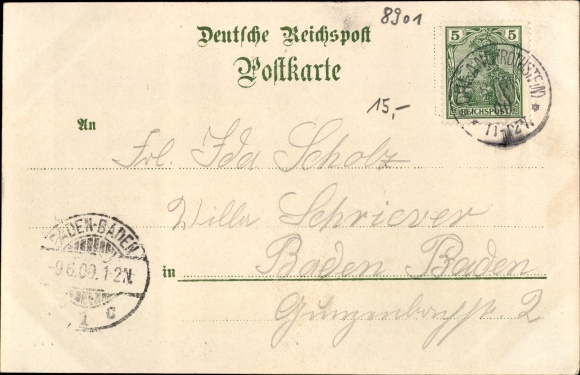 8901
Deutsche Reichspost
Postkarte
5 5
REICHSPOST
11-12V.
15,-
An
Frl. Ida Scholz
Villa Schriever
BADEN-BADEN
9.6.00.1-2N.
1 c
in Baden Baden
Gunzenbachstr. 2